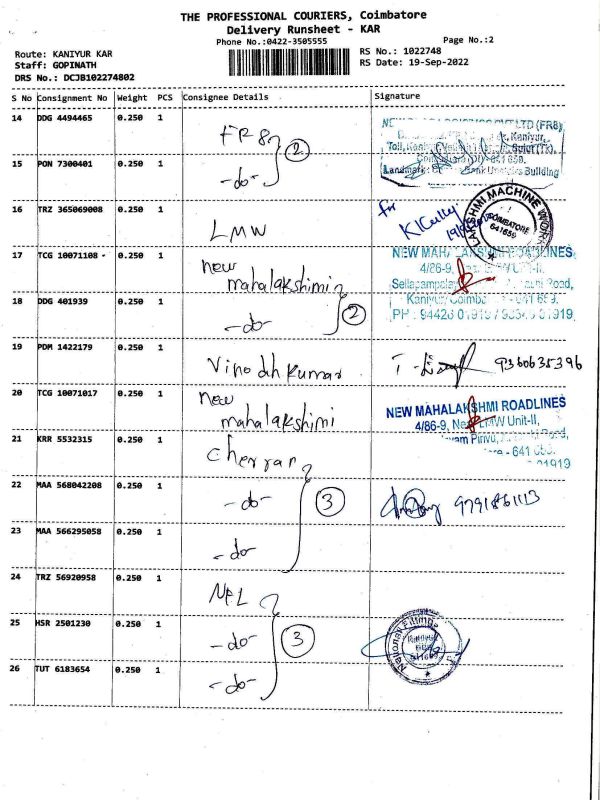 THE PROFESSIONAL COURIERS, Coimbatore
Delivery Runsheet - KAR
Phone No.:0422-3505555
Page No.:2
Route: KANIYUR KAR
Staff: GOPINATH
DRS No.: DCJB102274802
RS No.: 1022748
RS Date: 19-Sep-2022
S No Consignment No Weight PCS Consignee Details Signature
14 DDG 4494465 0.250 1 FR8
15 PON 7300401 0.250 1 -do- 2
(FR8)
Kaniyur,
Landmark: Bank Building
16 TRZ 365069008 0.250 1 LMW
for
LAKSHMI MACHINE WORKS
COIMBATORE
641659
17 TCG 10071108 0.250 1 new mahalakshimi
18 DDG 401939 0.250 1 -do- 2
NEW MAHALAKSHMI ROADLINES
4/86-9, Unit-II,
Road,
Kaniyur, Coimbatore - 641 659.
PH : 94426 01919 / 01919
19 PDM 1422179 0.250 1 Vinodhkumar 9360635396
20 TCG 10071017 0.250 1 new mahalakshimi
NEW MAHALAKSHMI ROADLINES
4/86-9, Near LMW Unit-II,
Pirivu, Road,
- 641 659.
01919
21 KRR 5532315 0.250 1 Cherran
22 MAA 568042208 0.250 1 -do- 3 9791861113
23 MAA 566295058 0.250 1 -do-
24 TRZ 56920958 0.250 1 NFL
25 HSR 2501230 0.250 1 -do- 3
26 TUT 6183654 0.250 1 -do-
National Fitting
Kaniyur
641659